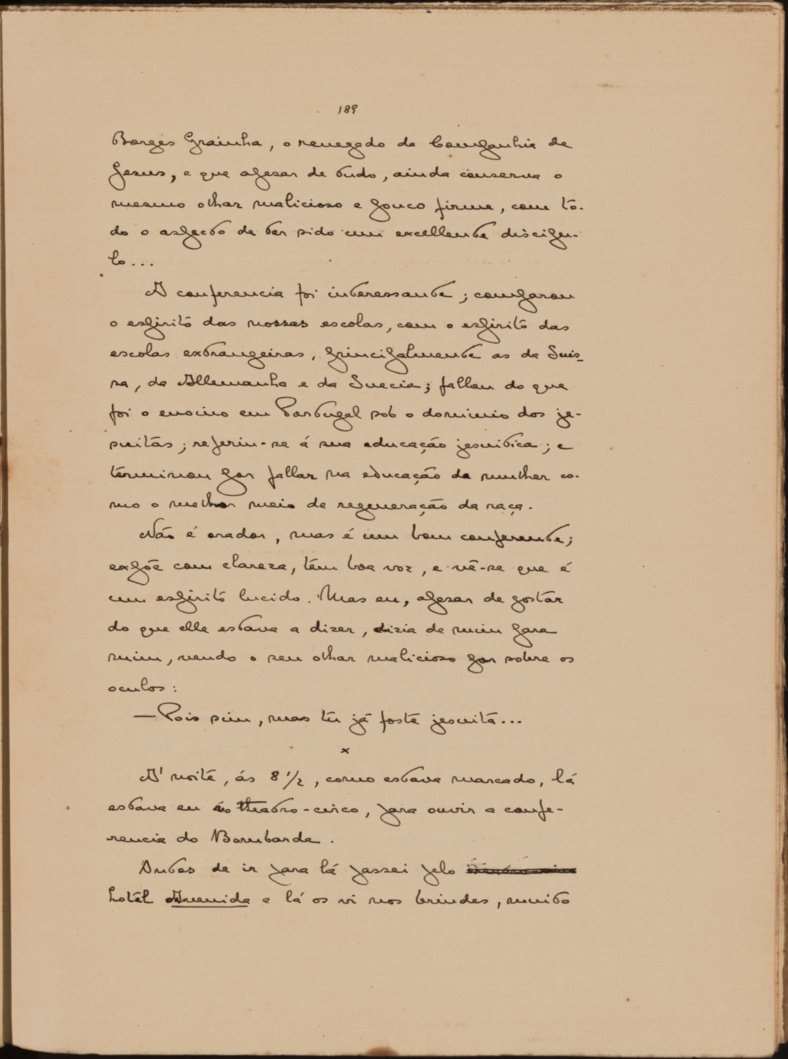 189
Borges Grainha, o renegado da Companhia de
Jesus, e que apesar de tudo, ainda conserva o
mesmo olhar malicioso e pouco firme, com to-
do o aspecto de ter sido um excellente discipu-
lo...
A conferencia foi interessante; comparou
o espirito das nossas escolas, com o espirito das
escolas extrangeiras, principalmente as da Suis-
sa, da Allemanha e da Suecia; fallou do que
foi o ensino em Portugal sob o dominio dos je-
suitas; referiu-se á sua educação jesuitica; e
terminou por fallar na educação da mulher co-
mo o melhor meio de regeneração da raça.
Não é orador, mas é um bom conferente;
expõe com clareza, tem boa voz, e vê-se que é
um espirito lucido. Mas eu, apesar de gostar
do que elle estava a dizer, dizia de mim para
mim, vendo o seu olhar malicioso por sobre os
oculos:
— Pois sim, mas tu já foste jesuita...
x
A' noite, ás 8 1/2, como estava marcado, lá
estava eu no theatro-circo, para ouvir a confe-
rencia do Bombarda.
Antes de ir para lá passei pelo
hotel Avenida e lá os vi nos brindes, muito